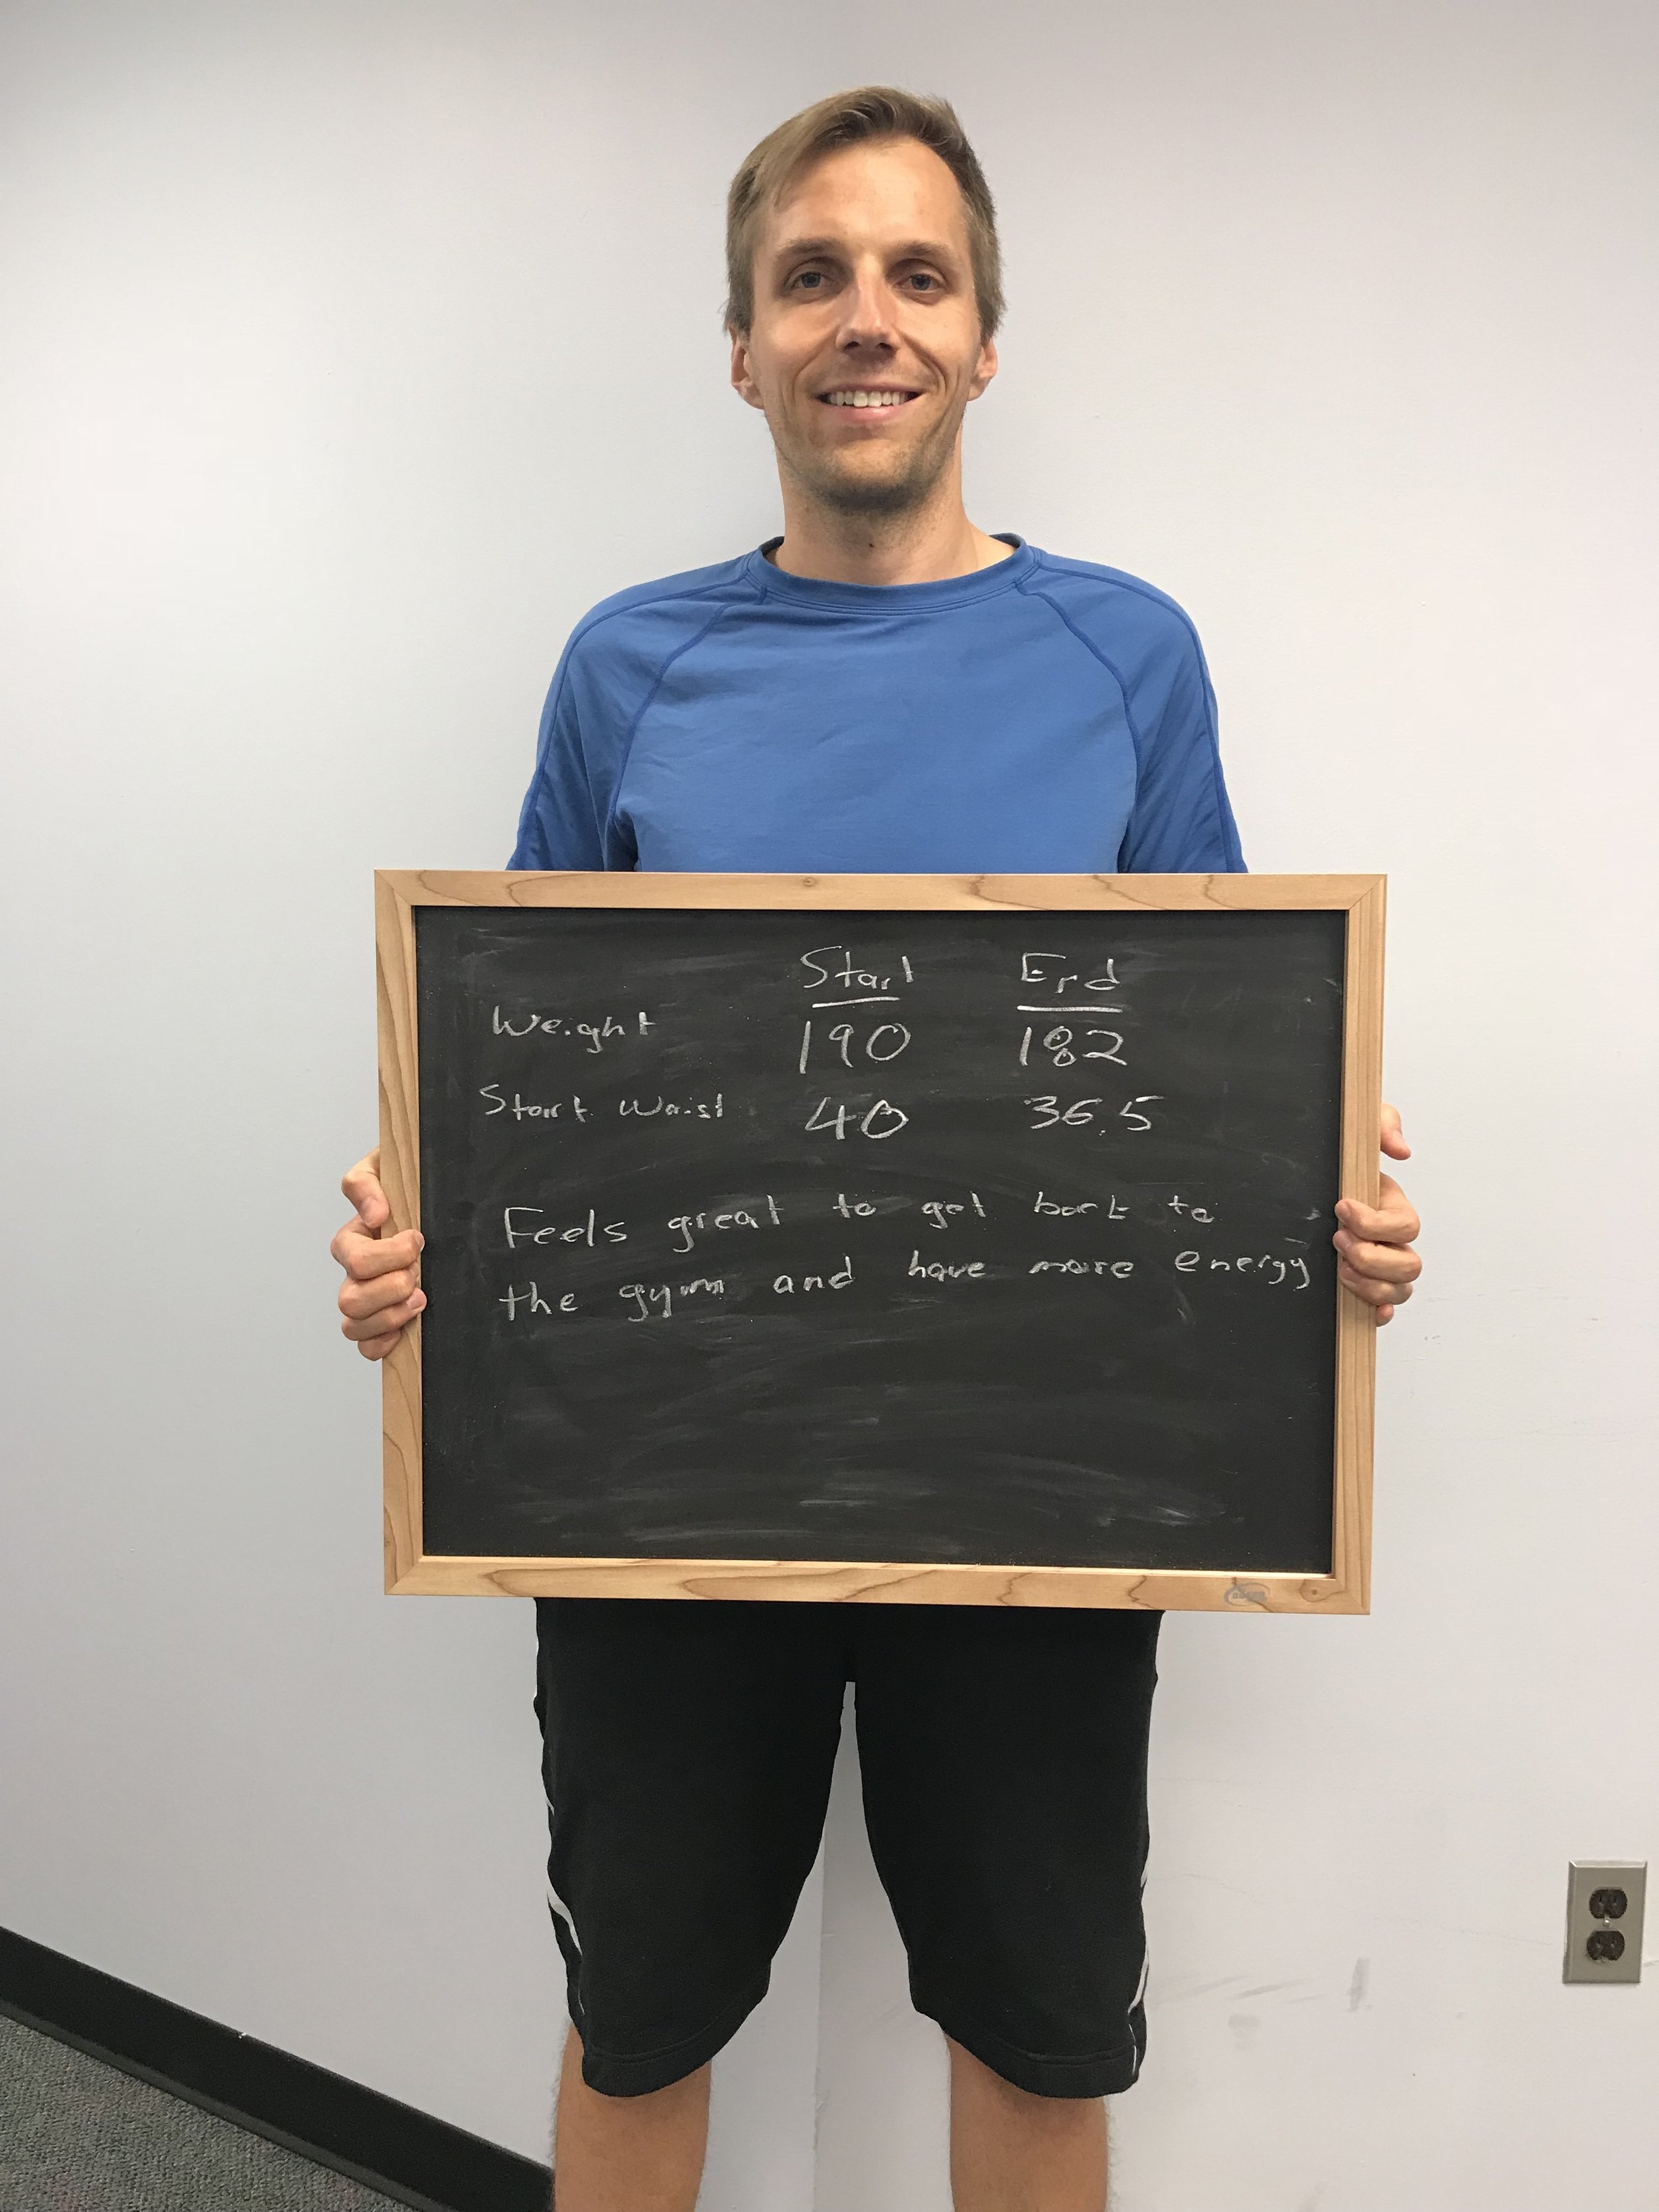 Start End
Weight 190 182
Start Waist 40 36.5
Feels great to get back to
the gym and have more energy